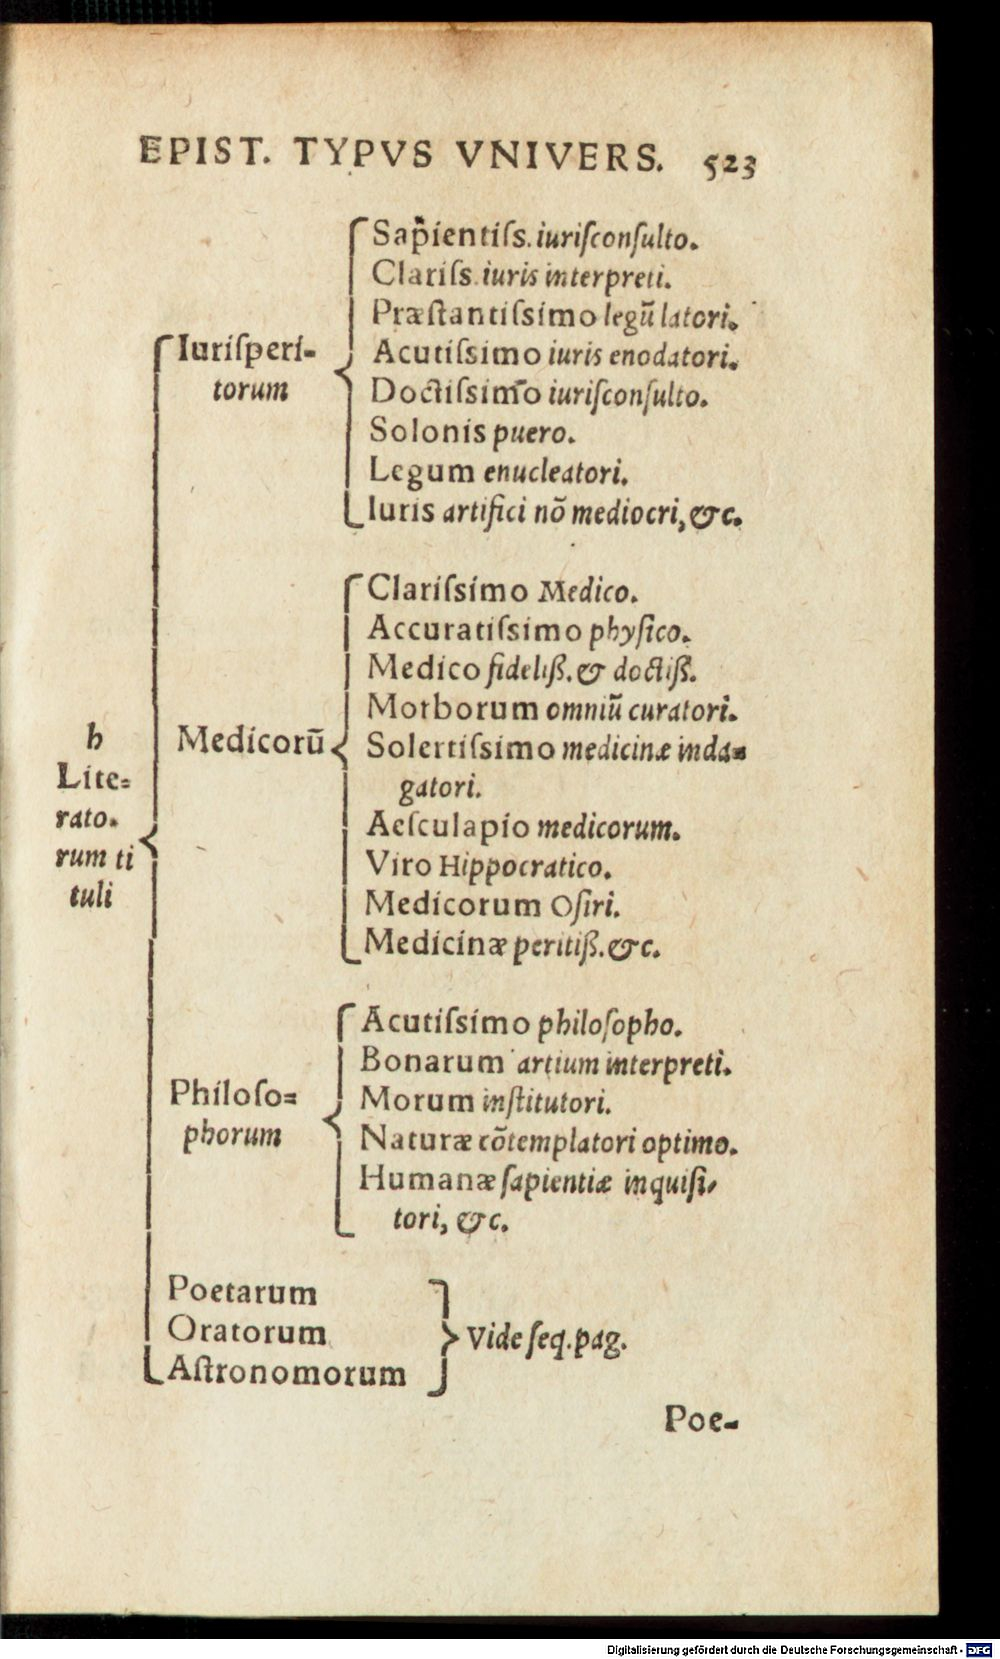 EPIST. TYPVS VNIVERS. 523
h
Lite=
rato.
rum ti
tuli
Iuriſperi-
torum
Sapientiſs. iuriſconſulto.
Clariſs. iuris interpreti.
Præſtantiſsimo legū latori.
Acutiſsimo iuris enodatori.
Doctiſsimo iuriſconſulto.
Solonis puero.
Legum enucleatori.
Iuris artifici nō mediocri, &c.
Medicorū
Clariſsimo Medico.
Accuratiſsimo phyſico.
Medico fideliß. & doctiß.
Morborum omniū curatori.
Solertiſsimo medicinæ inda=
gatori.
Aeſculapio medicorum.
Viro Hippocratico.
Medicorum Oſiri.
Medicinæ peritiß. &c.
Philoſo=
phorum
Acutiſsimo philoſopho.
Bonarum artium interpreti.
Morum inſtitutori.
Naturæ cōtemplatori optimo.
Humanæ ſapientiæ inquiſi-
tori, &c.
Poetarum
Oratorum
Aſtronomorum
Vide ſeq. pag.
Poe-
Digitalisierung gefördert durch die Deutsche Forschungsgemeinschaft - DFG